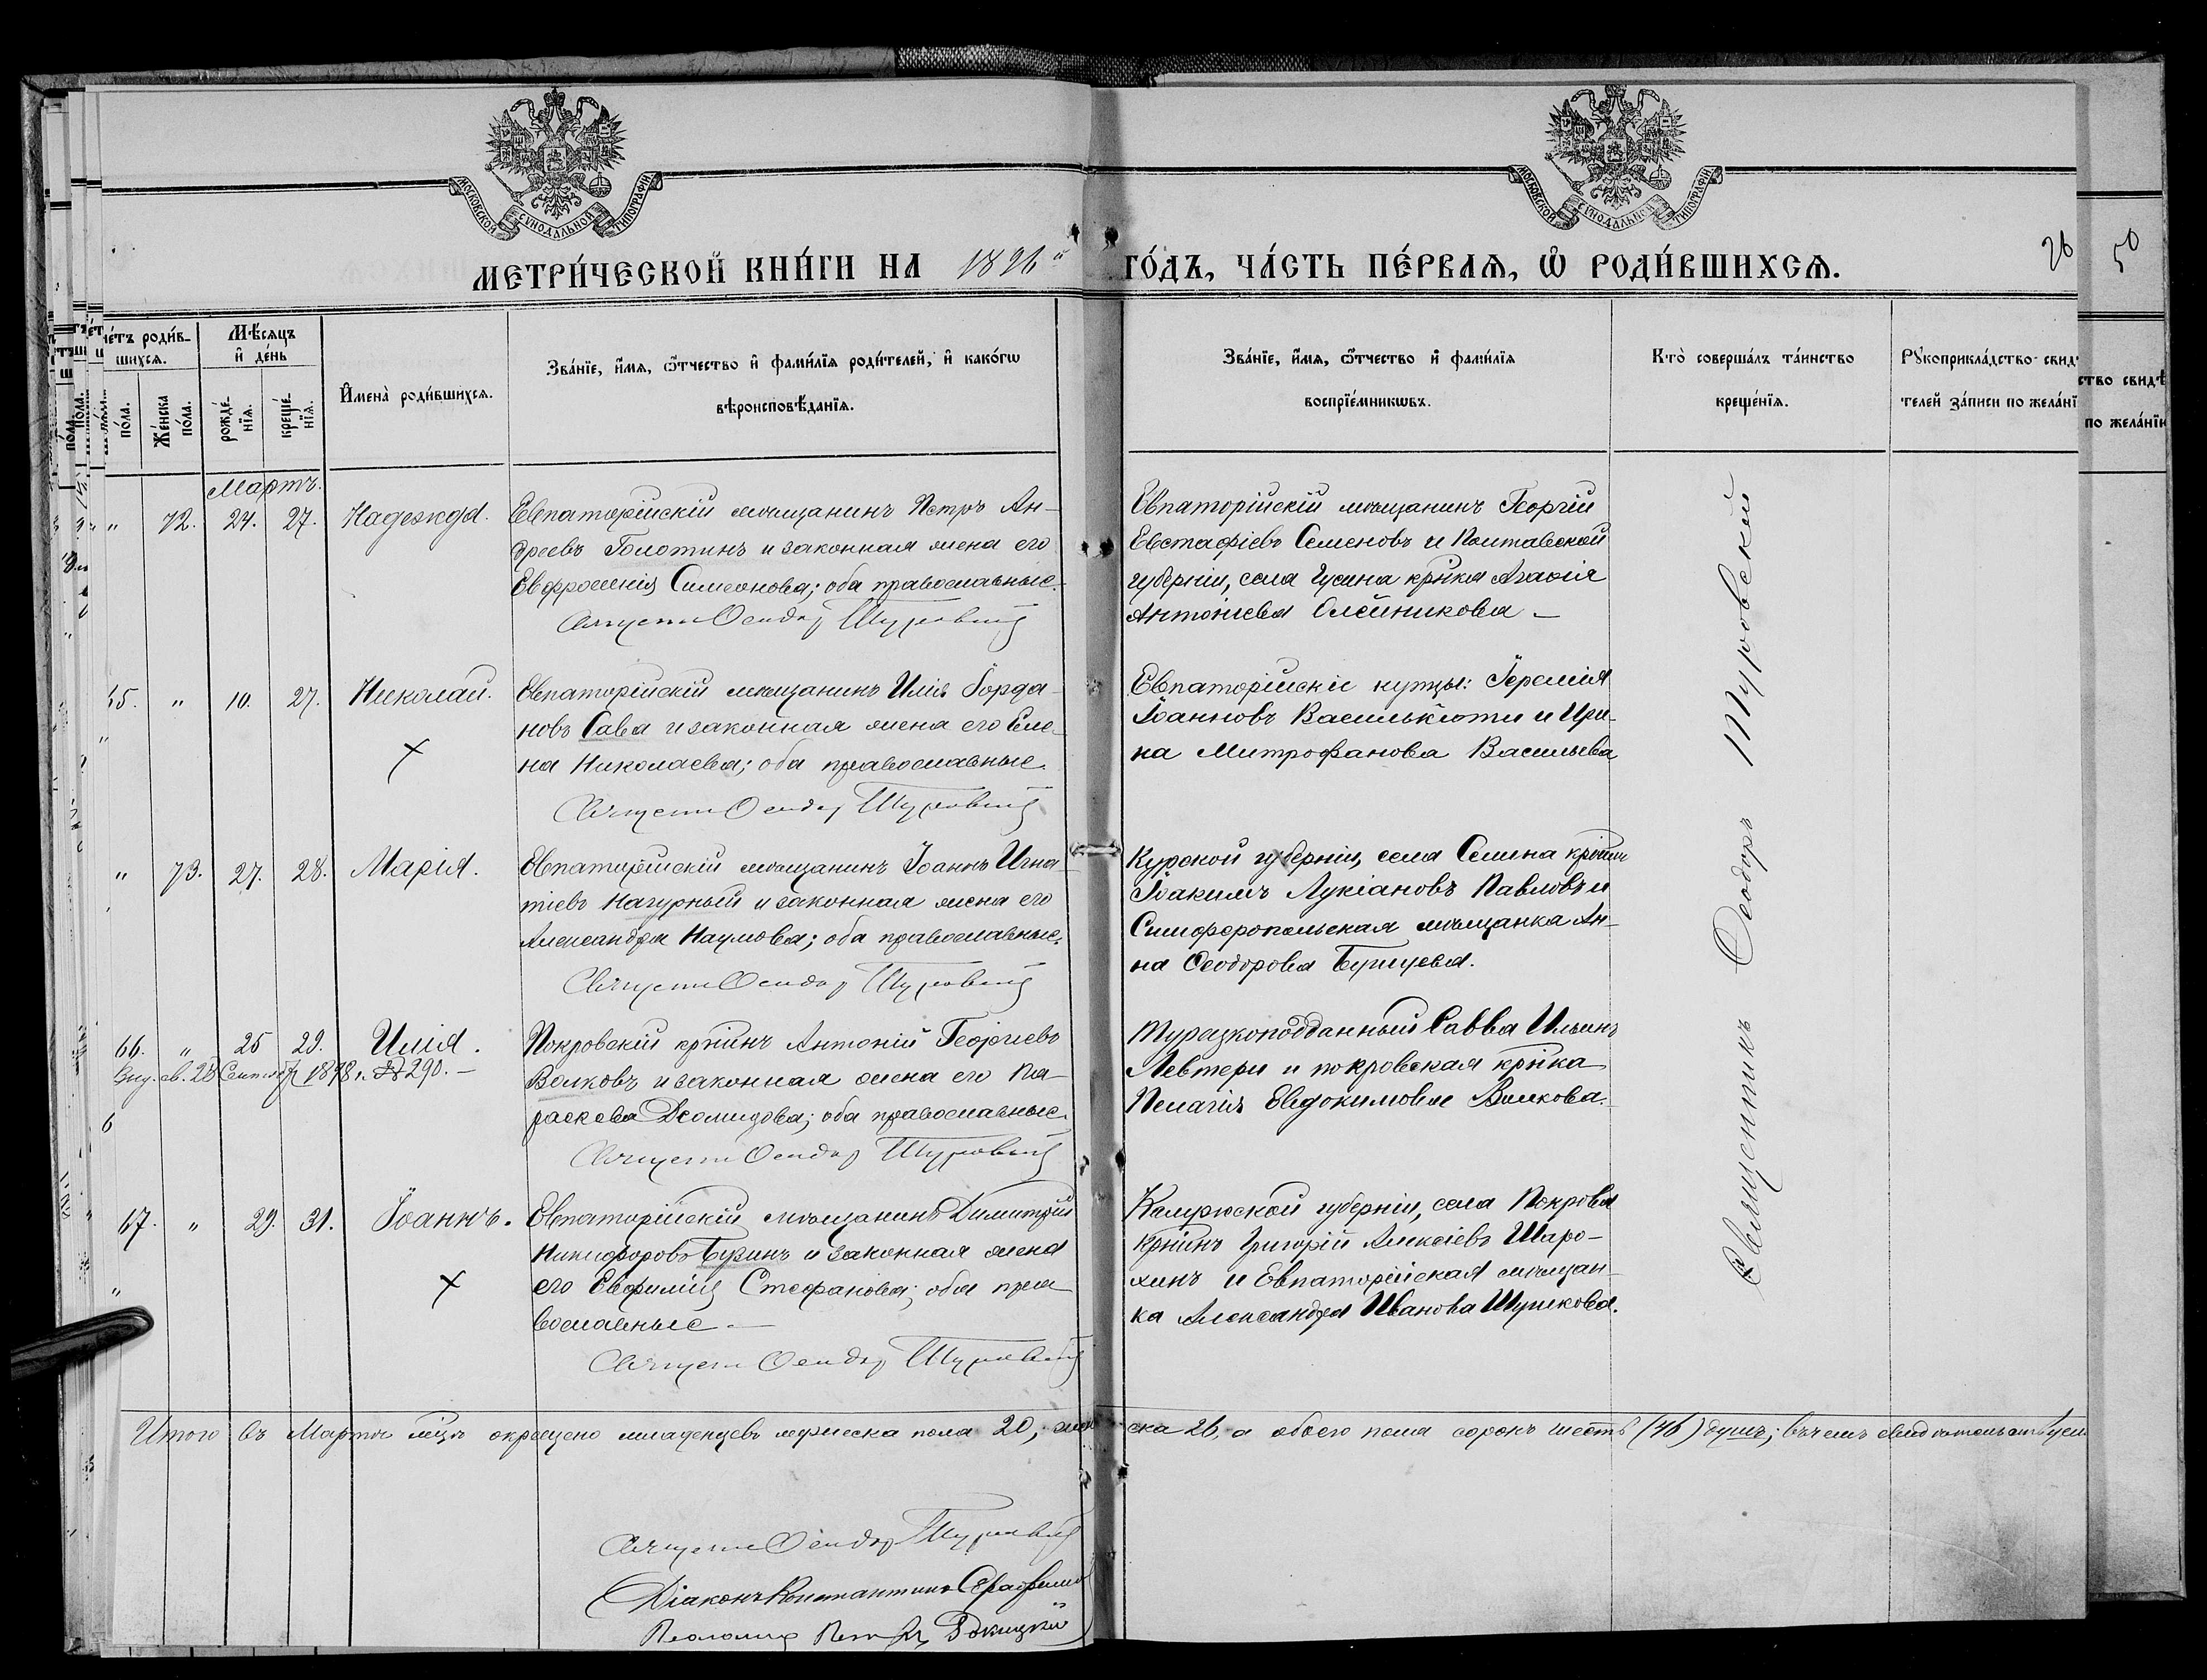 МОСКОВСКОЙ СУНОДАЛЬНОЙ ТИПОГРАФІИ
МОСКОВСКОЙ СУНОДАЛЬНОЙ ТИПОГРАФІИ
МЕТРИ́ЧЕСКОЙ КНИ́ГИ НА 1896й ГО́ДЪ, ЧА́СТЬ ПЕ́РВАЯ, Ѽ РОДИ́ВШИХСЯ.
26
50
че́тъ роди́в-
шихся.
Мѣ́сяцъ
и҆ де́нь
по́ла.
Же́нска по́ла.
рожде́нїя.
креще́нїя.
И҆мена̀ роди́вшихся.
Зва́нїе, и҆́мя, ѻ҆́тчество и҆ фами́лїя роди́телей, и҆ како́гѡ
вѣроисповѣ́данїя.
Зва́нїе, и҆́мя, ѻ҆́тчество и҆ фами́лїя
воспрїе́мникѡвъ.
Кто̀ соверша́лъ та́инство
креще́нїя.
Рꙋкоприкла́дство свид
телей за́писи по жела́нї
ство свидѣ
по жела́нїи
Мартъ.
" 72. 24. 27. Надежда.
Евпаторійскій мѣщанинъ Петръ Ан-
дреевъ Болотинъ и законная жена его
Евфросинія Симеонова; оба православные.
Священ. Ѳеодоръ Туровскій
Евпаторійскій мѣщанинъ Георгій
Евстафіевъ Семеновъ и Полтавской
губерніи, села Гусина кр҃нка Агаѳія
Антоніева Олейникова —
65. " 10. 27. Николай.
Евпаторійскій мѣщанинъ Илія Іорда-
новъ Сава и законная жена его Еле-
на Николаева; оба православные.
Священ. Ѳеодоръ Туровскій
Евпаторійскіе купцы: Іеремія
Іоанновъ Василькіоти и Ири-
на Митрофанова Васильева
" 73. 27. 28. Марія.
Евпаторійскій мѣщанинъ Іоаннъ Игна-
тіевъ Нагурный и законная жена его
Александра Наумова; оба православные.
Священ. Ѳеодоръ Туровскій
Курской губерніи, села Семина кр
Іоакимъ Лукіановъ Павловъ и
Симферопольская мѣщанка Ан-
на Ѳеодорова Бунцева.
66. " 25 29. Илія.
Выд. св. 28 Сентяб 1898 г. № 290. —
Покровскій кр҃нинъ Антоній Георгіевъ
Волковъ и законная жена его Па-
раскева Діомидова; оба православные.
Священ. Ѳеодоръ Туровскій
Турецкоподданный Савва Ильинъ
Левтери и покровская кр҃нка
Пелагія Евдокимова Волкова.
67. " 29. 31. Іоаннъ.
Евпаторійскій мѣщанинъ Димитрій
Никифоровъ Бузинъ и законная жена
его Евфимія Стефанова; оба пра-
вославные —
Священ. Ѳеодоръ Туровскій
Калужской губерніи, села Покрова
кр҃нинъ Григорій Алексіевъ Шаро-
хинъ и Евпаторійская мѣщан-
ка Александра Иванова Шушкова.
Священникъ Ѳеодоръ Туровскій
Итого въ Мартѣ мцѣ окрещено младенцевъ мужеска пола 20, женска 26, а обоего пола сорокъ шесть (46) душъ; въ чемъ свидѣтельствуем
Священ. Ѳеодоръ Туровскій
Діаконъ Константинъ Серафимов
Псаломщ Петръ Рокицкій